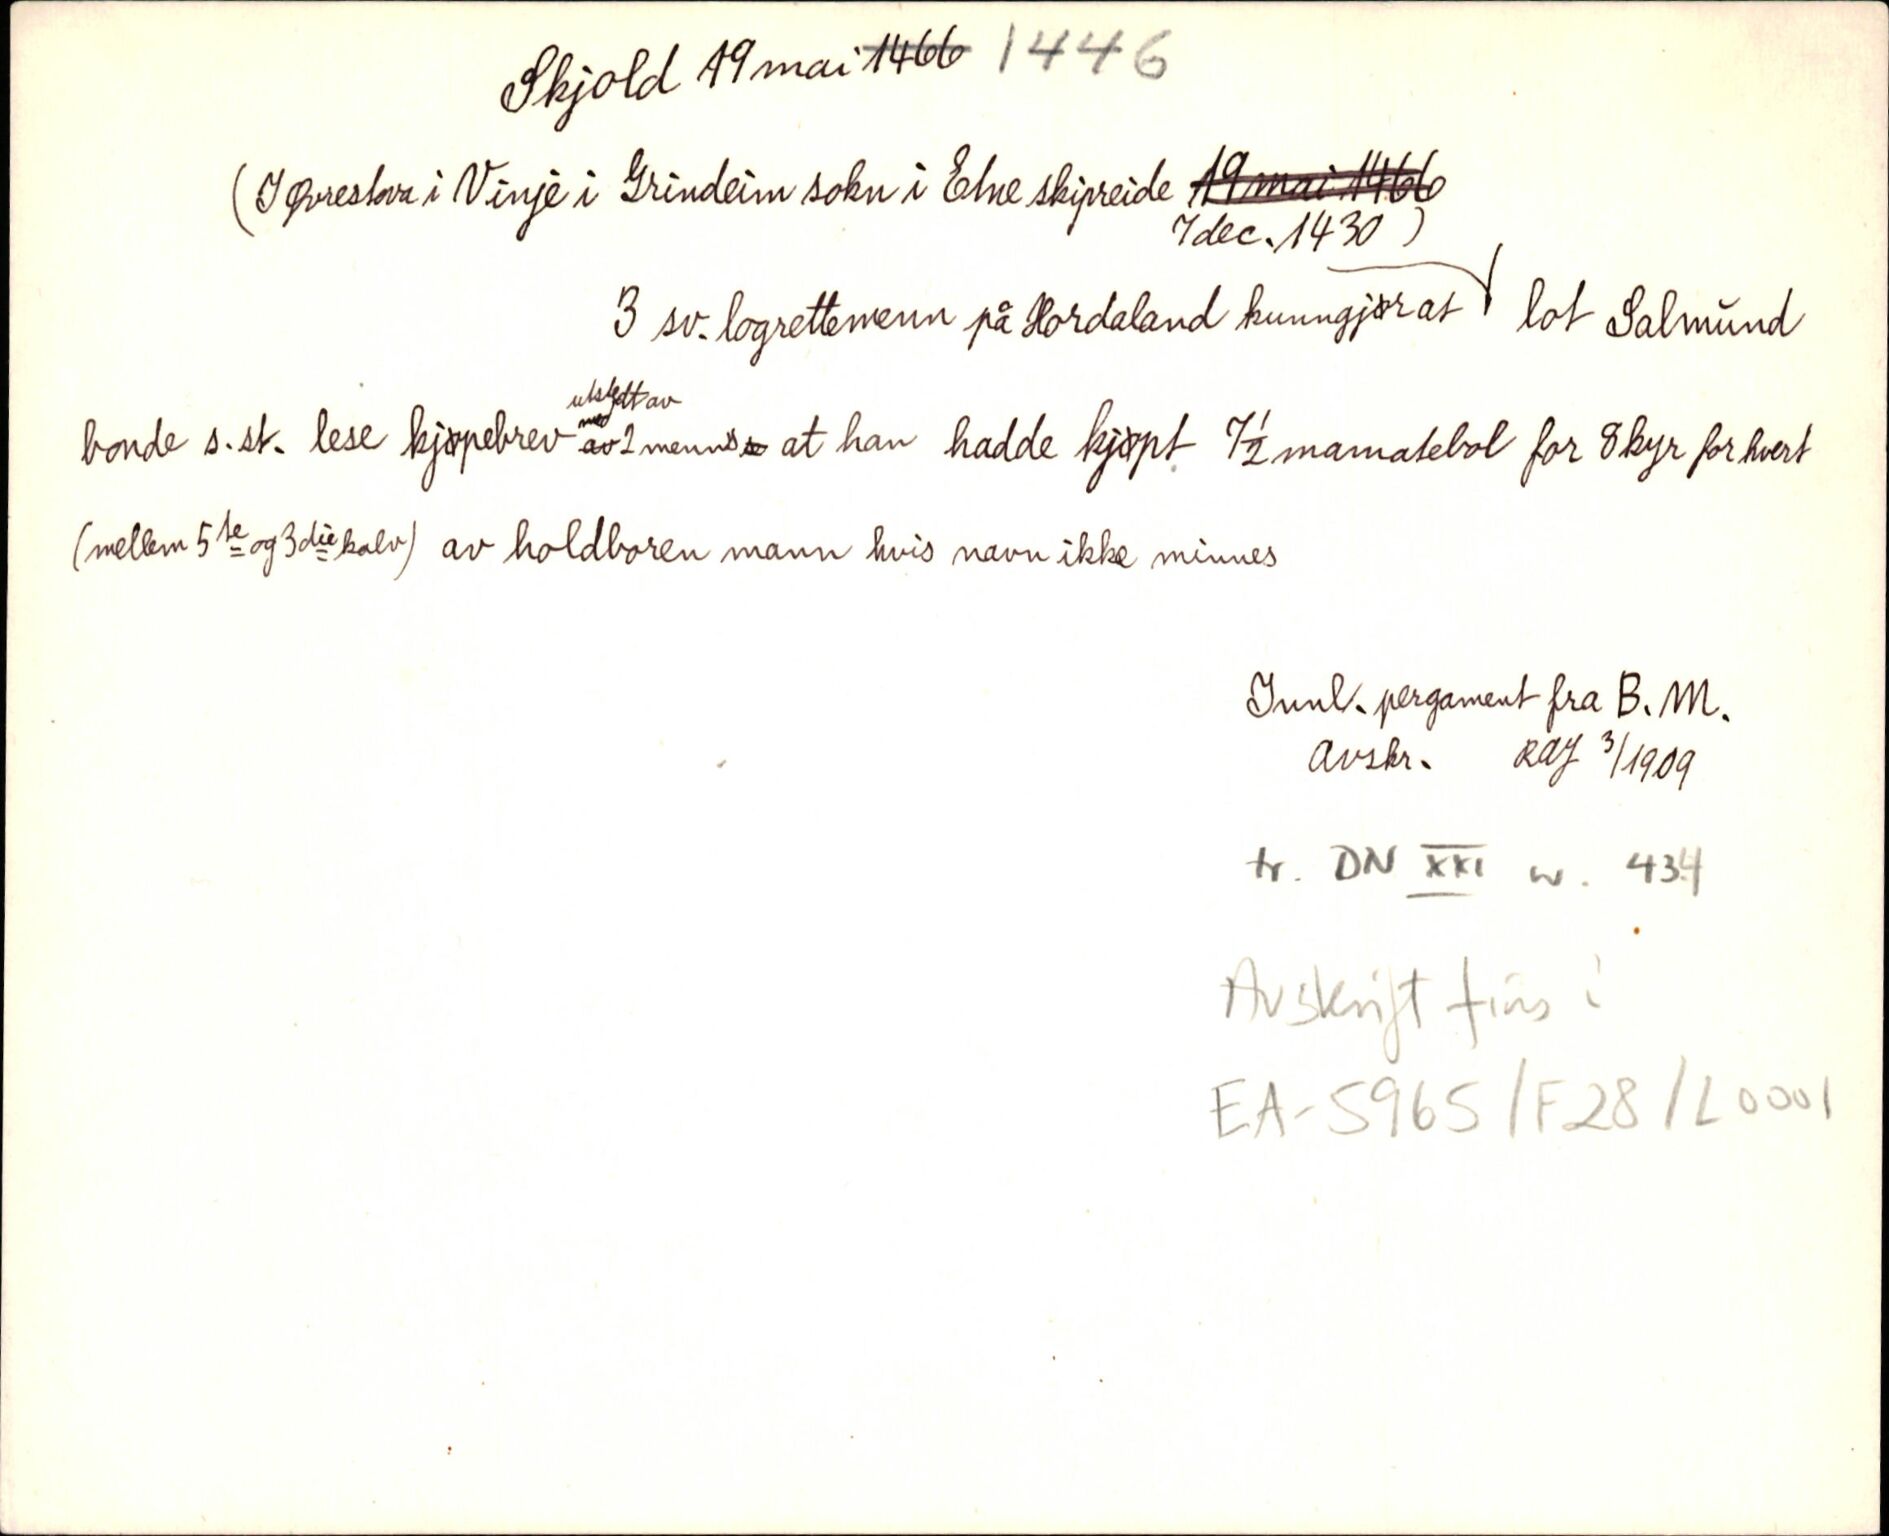 Skjold 19 mai 1466 1446
(I Øvrestova i Vinje i Grindeim sokn i Etne skipreide 19 mai 1466
7 dec. 1430)
3 sv. logrettemenn på Hordaland kunngjør at lot Salmund
utstedt av
bonde s.st. lese kjøpebrev av 2 menn at han hadde kjøpt 7 1/2 mamatebol for 8 kyr for hvert
(mellem 5te og 3die kalv) av holdboren mann hvis navn ikke minnes
Innl. pergament fra B. M.
Avskr. RAJ 3/1909
tr. DN XXI nr. 434
Avskrift fins i
EA-5965/F28/L0001